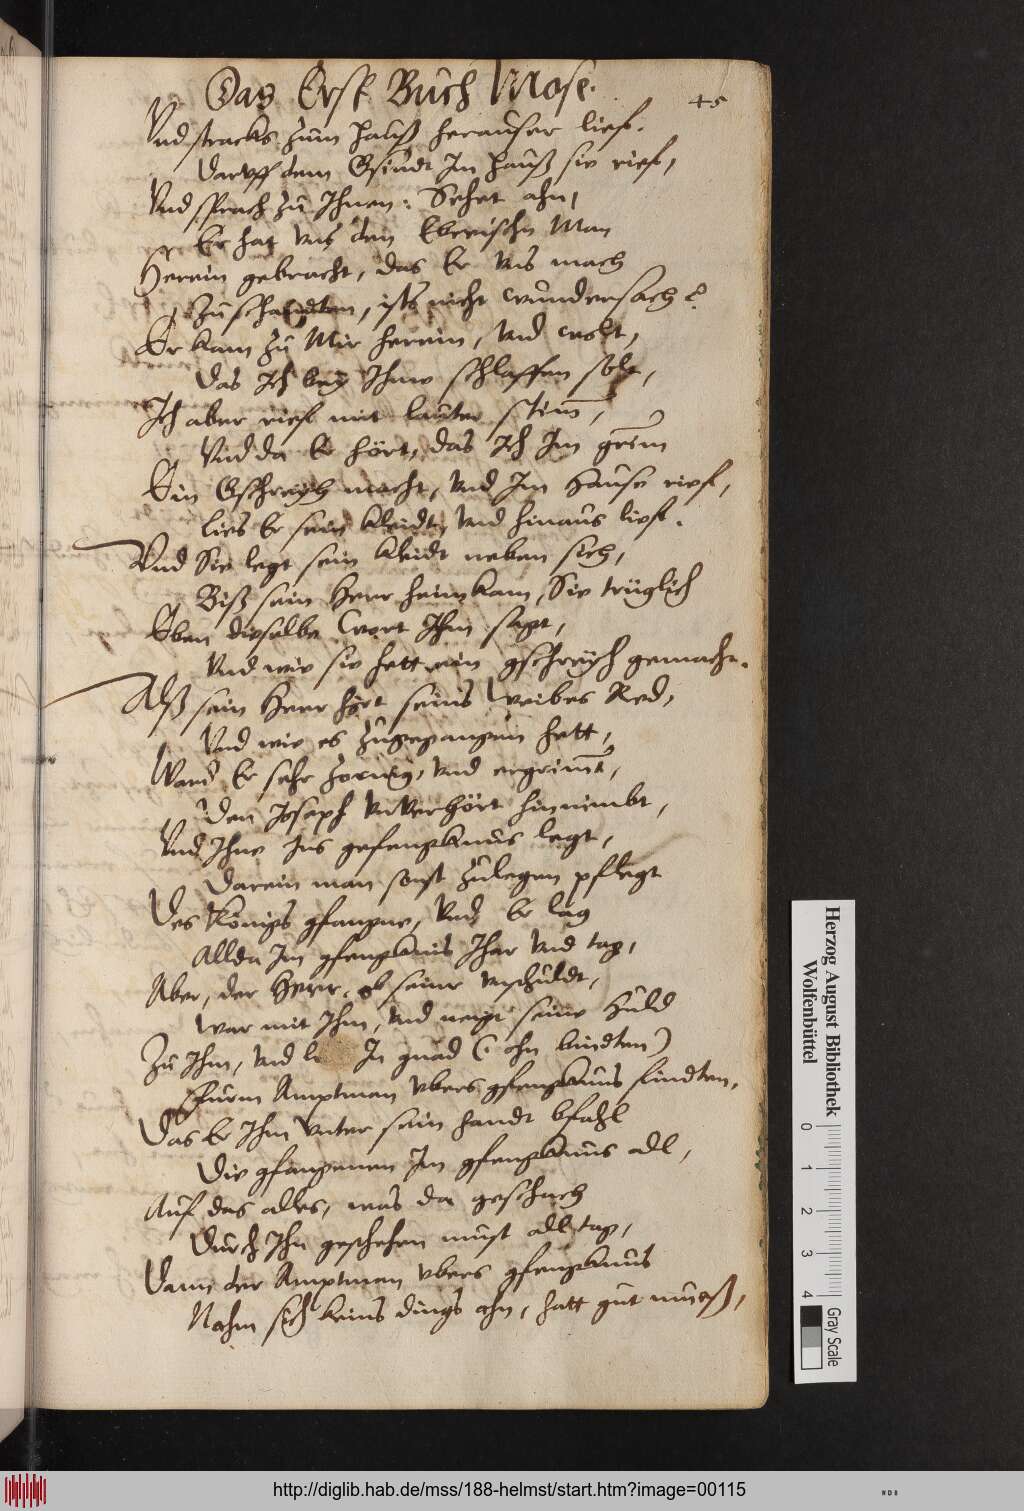 Das Erst Buch Mose.
45
Vnd stracks zum hauß herauser lieff.
Darvff dem Gsindt Im hauß sie rieff,
Vnd sprach zu Ihnen: Sehet ahn,
Er hat vns den Ebreischn Man
Herein gebracht, das Er vns mach
Zuschandten, ists nicht wundersach?
Er kam zu Mir herein, vnd wolt,
Das Ich bey Ihme schlaffen solt,
Ich aber rieff mit lauter stim,
Vnd da Er hört, das Ich Im grim
Ein Gschreyh macht, vnd Im Hause rieff,
Lies Er sein kleidt, vnd hinaus lieff.
Vnd Sie legt sein kleidt neben sich,
Biß sein Herr heim kam, Sie trüglich
Eben dieselbe wort Ihm sagt,
Vnd wie sie hett ein gschreyh gemacht.
Alß sein Herr hört seins Weibes Red,
Vnd wie es zugegangen hett,
Ward Er sehr zornig, vnd ergrimt,
Den Joseph vnverhört hinnimbt,
Vnd Ihne Ins gefengknus legt,
Darein man sonst zulegen pflegt
Des Königs gfangne, Vnd Er lag
Allda Im gfengknus Jhar vnd tag,
Aber, der Herr, ob seine vnschuldt,
War mit Ihm, vnd neigt seine Huld
Zu Ihm, vnd In gnad (ohn
Fürm Amptman vbers gfengknus findten,
Das Er Ihm vnter sein handt bfahl
Die gfangenen Im gfengknus all,
Auf das alles, was da geschach
Durch Ihn geschehen must all tag,
Dann der Amptman vbers gfengknus
Nahm sich keins dings ahn, hatt gut
Herzog August Bibliothek
Wolfenbüttel
0 1 2 3 4
Gray Scale
http://diglib.hab.de/mss/188-helmst/start.htm?image=00115